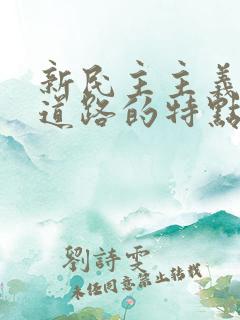 新民主主義
道路的特點
劉詩雯
未經同意禁止轉載